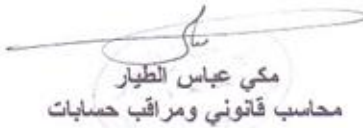 مكي عباس الطيار
محاسب قانوني ومراقب حسابات